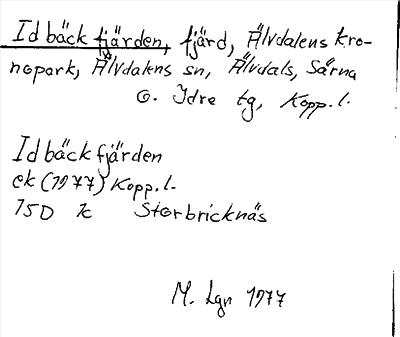 Idbäckfjärden, fjärd, Älvdalens kro-
nopark, Älvdalens sn, Älvdals, Särna
o. Idre tg, Kopp. l.
Idbäckfjärden
ek (1977) Kopp. l.
15D k Storbricknäs
M. Lgn 1977